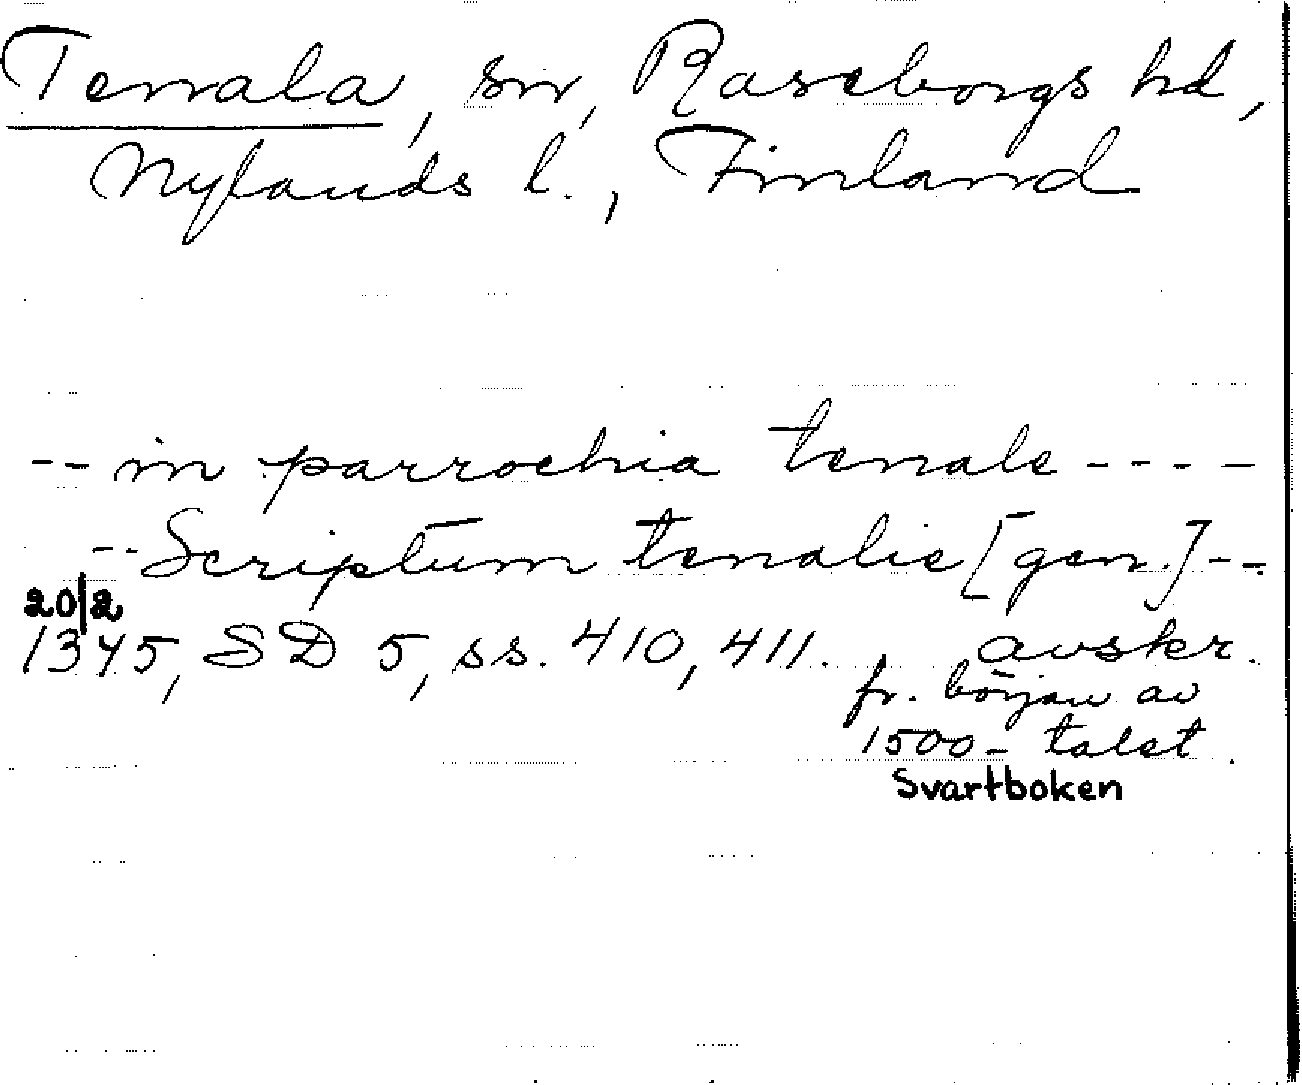 Tenala, sn, Raseborgs hd,
Nylands l., Finland
-- in parrochia tenale ----
-- Scriptum tenalie [gen.] --
20/2
1345, SD 5, ss. 410, 411. avskr.
fr. början av
1500-talet.
Svartboken